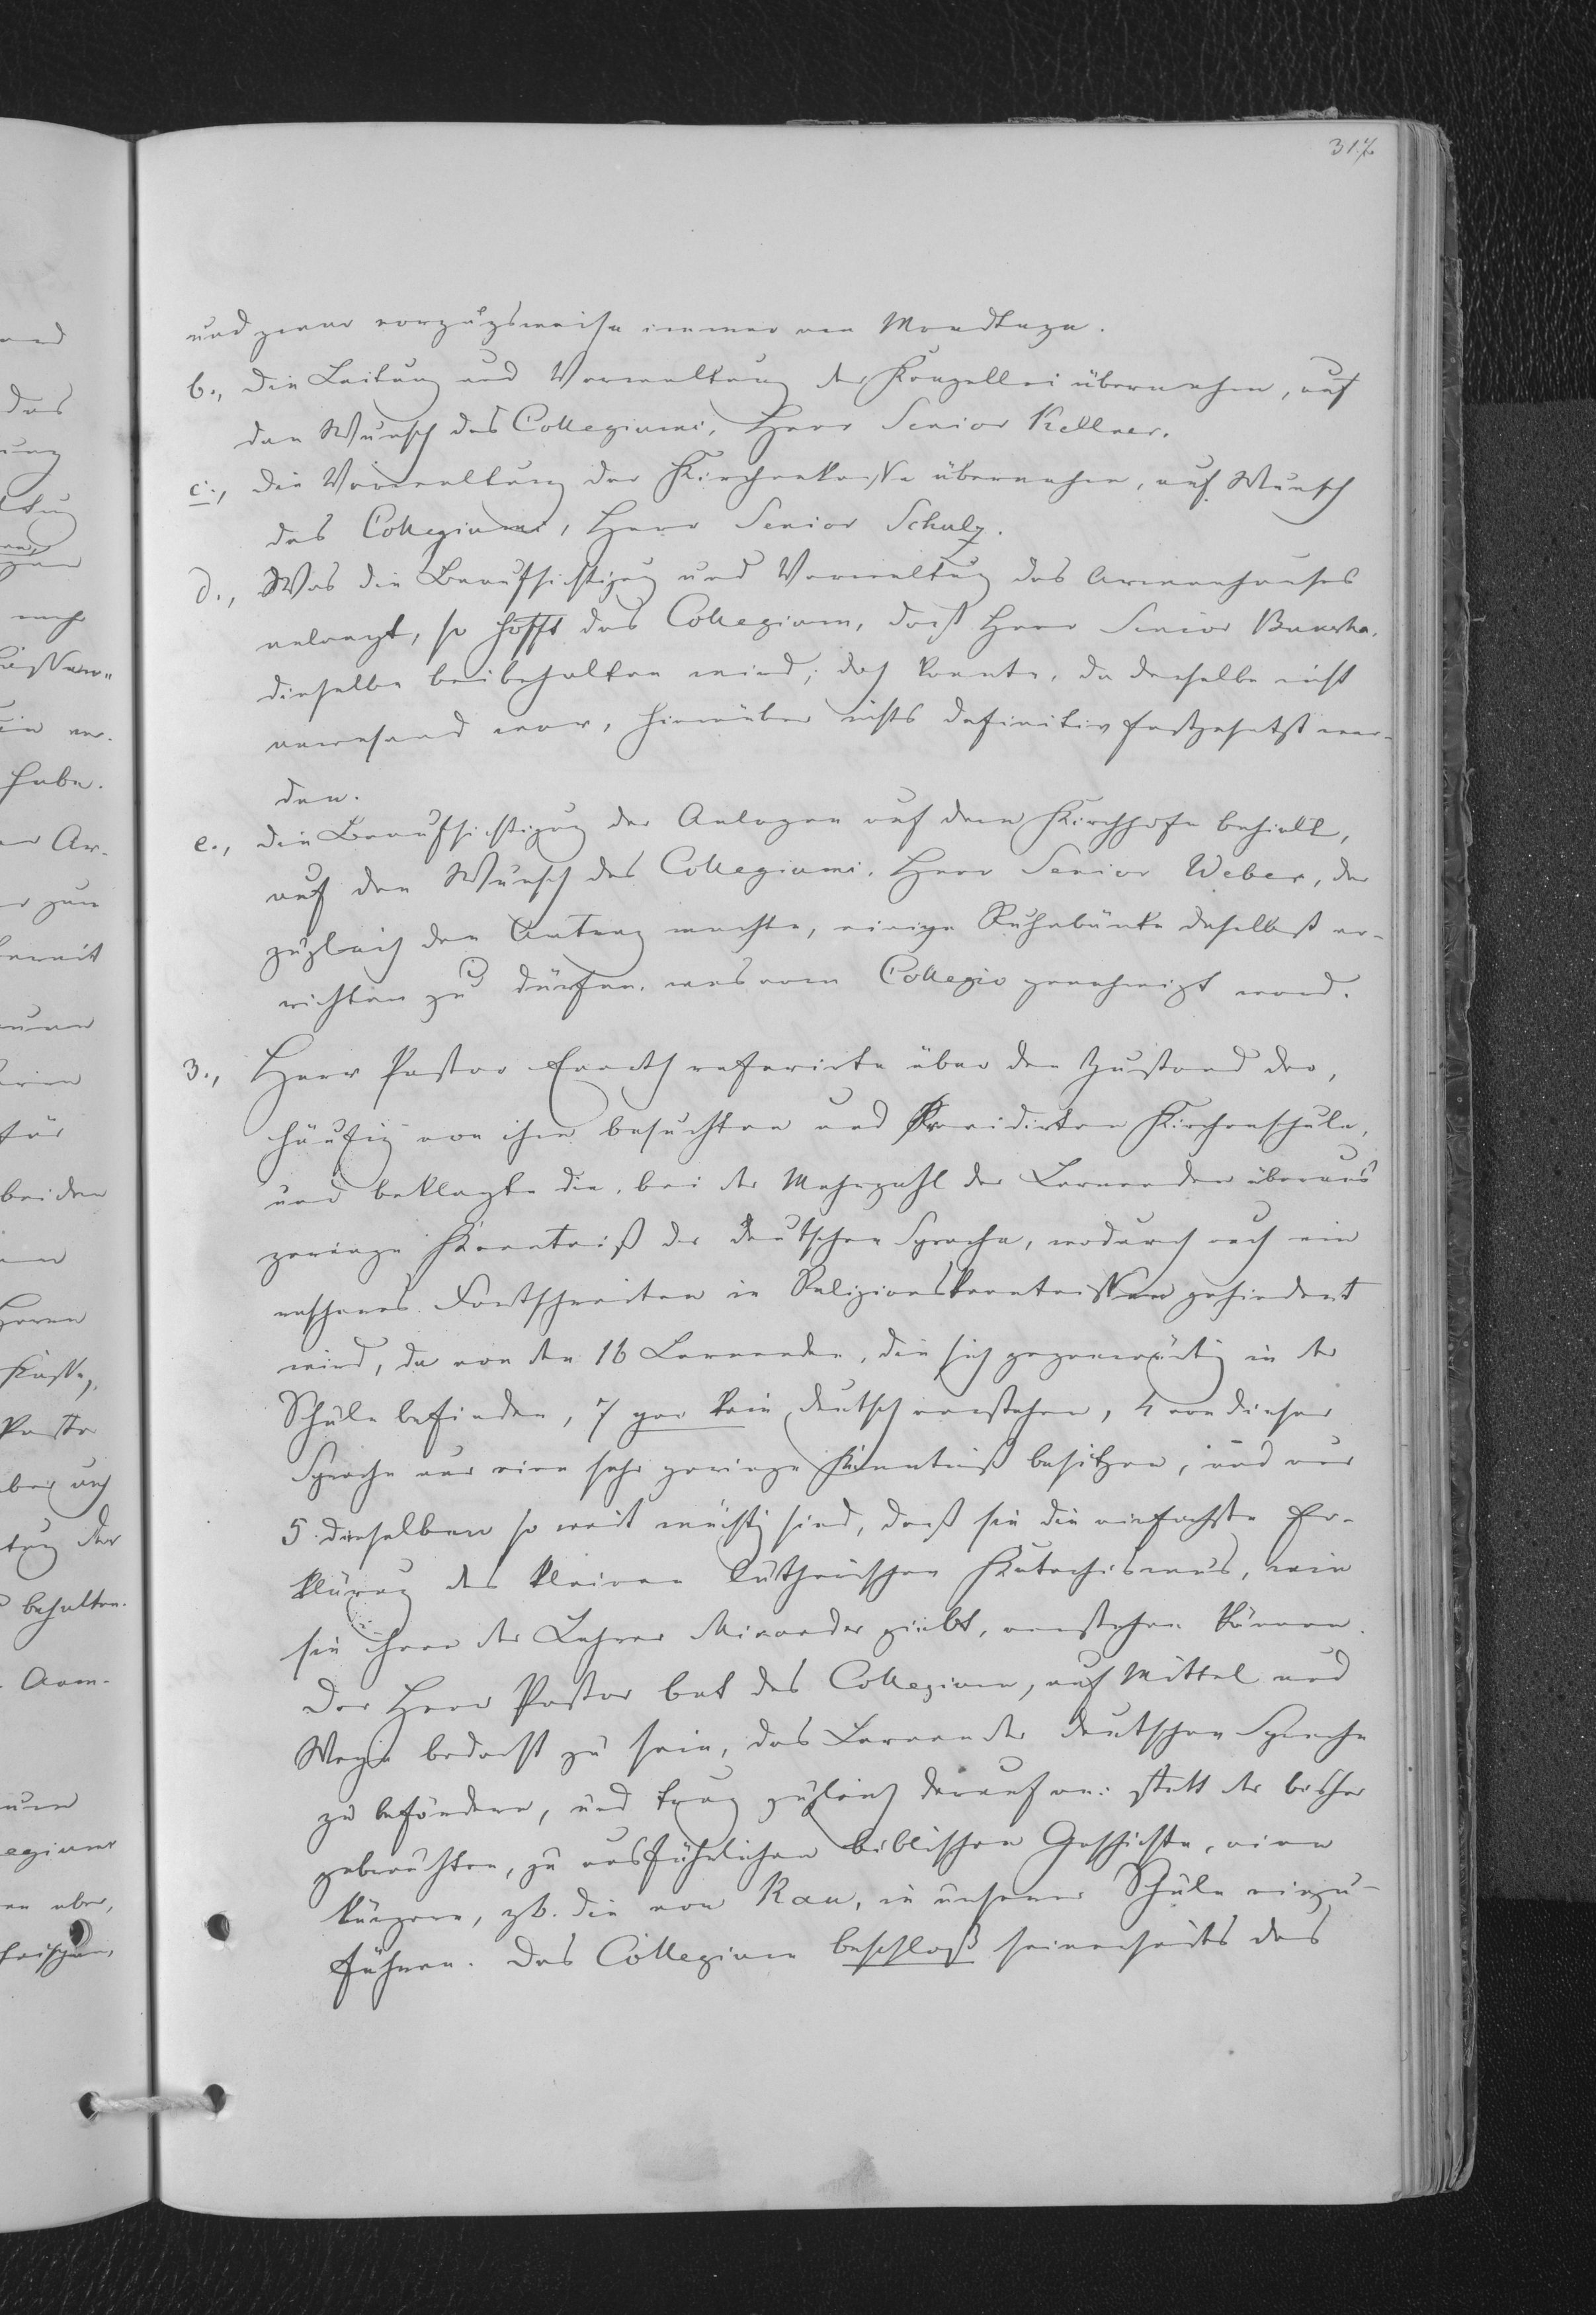 317
und zwar vorzugsweise immer am Mondtage.
b., die Leitung und Verwaltung der Kanzellei übernahm, auf
den Wunsch des Collegiums, Herr Senior Kellner.
c., die Verwaltung der Kirchenkasse übernahm, auf Wunsch
des Collegiums, Herr Senior Schulz.
d., Was die Beaufsichtigung und Verwaltung des Armenhauses
anlangt, so hofft das Collegium, daß Herr Senior
dieselbe beibehalten wird; doch konnte, da derselbe nicht
anwesend war, hierüber nichts definitiv festgesetzt wer-
den.
e., die Beaufsichtigung der Anlagen auf dem Kirchhofe behielt,
auf den Wunsch des Collegiums, Herr Senior Weber, der
zugleich den Antrag machte, einige Ruhebänke daselbst er-
richten zu dürfen, was vom Collegio genehmigt ward.
3., Herr Pastor referirte über den Zustand der,
häufig von ihm besuchten und revidirten Kirchenschule,
und beklagte die, bei der Mehrzahl der Lernenden überaus
geringe Kenntniß der deutschen Sprache, wodurch auch ein
rascheres Fortschreiten in Religionskenntnissen gehindert
wird, da von den 16 Lernenden, die sich gegenwärtig in der
Schule befinden, 7 gar kein deutsch verstehen, 4 von dieser
Sprache nur eine sehr geringe Kenntniß besitzen, und nur
5 derselben so weit mächtig sind, daß sie die einfachste Er-
klärung des kleinen lutherischen Katechismus, wie
sie ihnen der Lehrer giebt, verstehen können.
Der Herr Pastor bat das Collegium, auf Mittel und
Wege bedacht zu sein, das Lernen der deutschen Sprache
zu befördern, und trug zugleich darauf an: statt der bisher
gebrauchten, zu ausführlichen biblischen Geschichte, eine
kürzere, zb. die von Rau, in unserer Schule einzu-
führen. Das Collegium beschloß seinerseits das